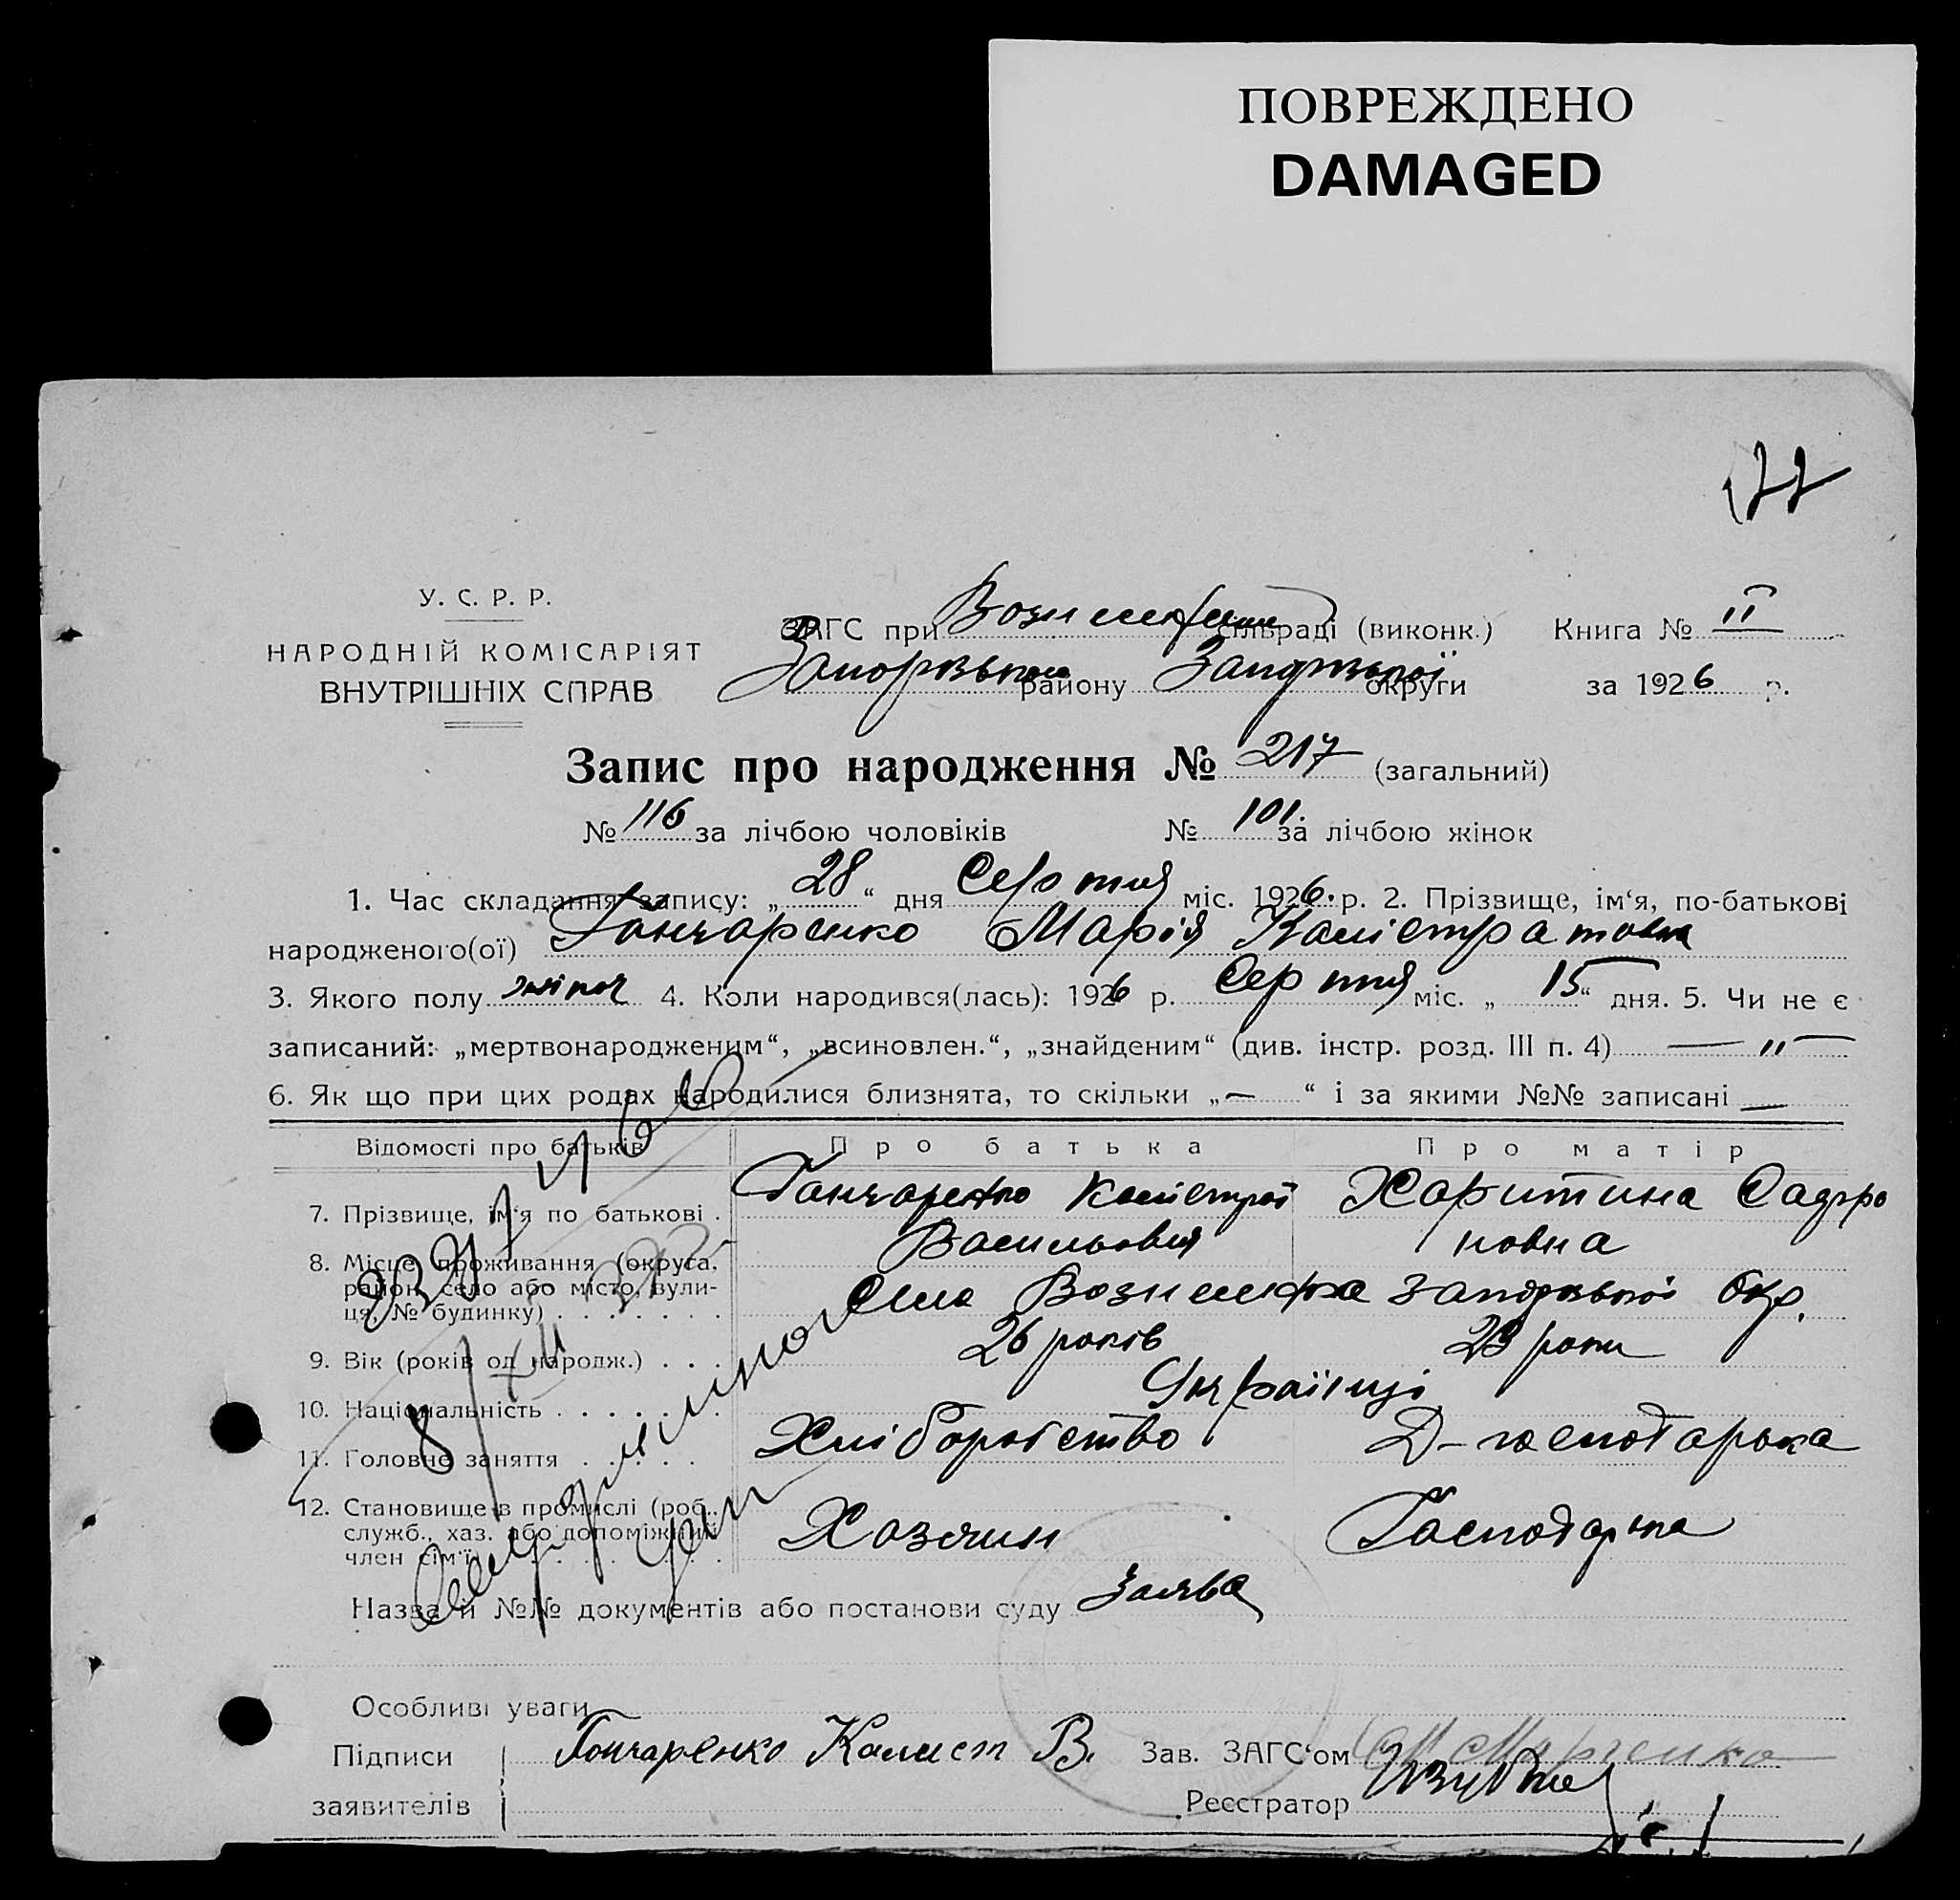 ПОВРЕЖДЕНО
DAMAGED
У. С. Р. Р.
НАРОДНІЙ КОМІСАРІЯТ
ВНУТРІШНІХ СПРАВ
ЗАГС при сільраді (виконк.) Книга № II
району округи за 1926 р.
Запис про народження № 217 (загальний)
№ 116 за лічбою чоловіків № 101. за лічбою жінок
1. Час складання запису: „ 28 “ дня Серпня міс. 1926. р. 2. Прізвище, ім‘я, по-батькові
народженого(ої) Гончаренко Марія Калістратовна
3. Якого полу жіноч 4. Коли народився(лась): 1926 р. Серпня міс. „ 15 “ дня. 5. Чи не є
записаний: „мертвонародженим“, „всиновлен.“, „знайденим“ (див. інстр. розд. III п. 4) — " —
6. Як що при цих родах народилися близнята, то скільки „ — “ і за якими №№ записані —
Відомості про батьків Про батька Про матір
7. Прізвище, ім‘я по батькові . Гончаренко Калістрат Васильович Харитина Софроновна
8. Місце проживання (округа, район, село або місто, вулиця, № будинку) . . . . . . . Село Вознесенка Запорізької Окр.
9. Вік (років од народж.) . . . 26 років 23 роки
10. Національність . . . . . . . Українці
11. Головне заняття . . . . . Хліборобство Д-господарька
12. Становище в промислі (роб., служб., хаз. або допоміжний член сім‘ї) Хозяин Господарька
Назва й №№ документів або постанови суду Заява
Особливі уваги
Підписи Гончаренко Калист В. Зав. ЗАГС‘ом
заявителів Реєстратор